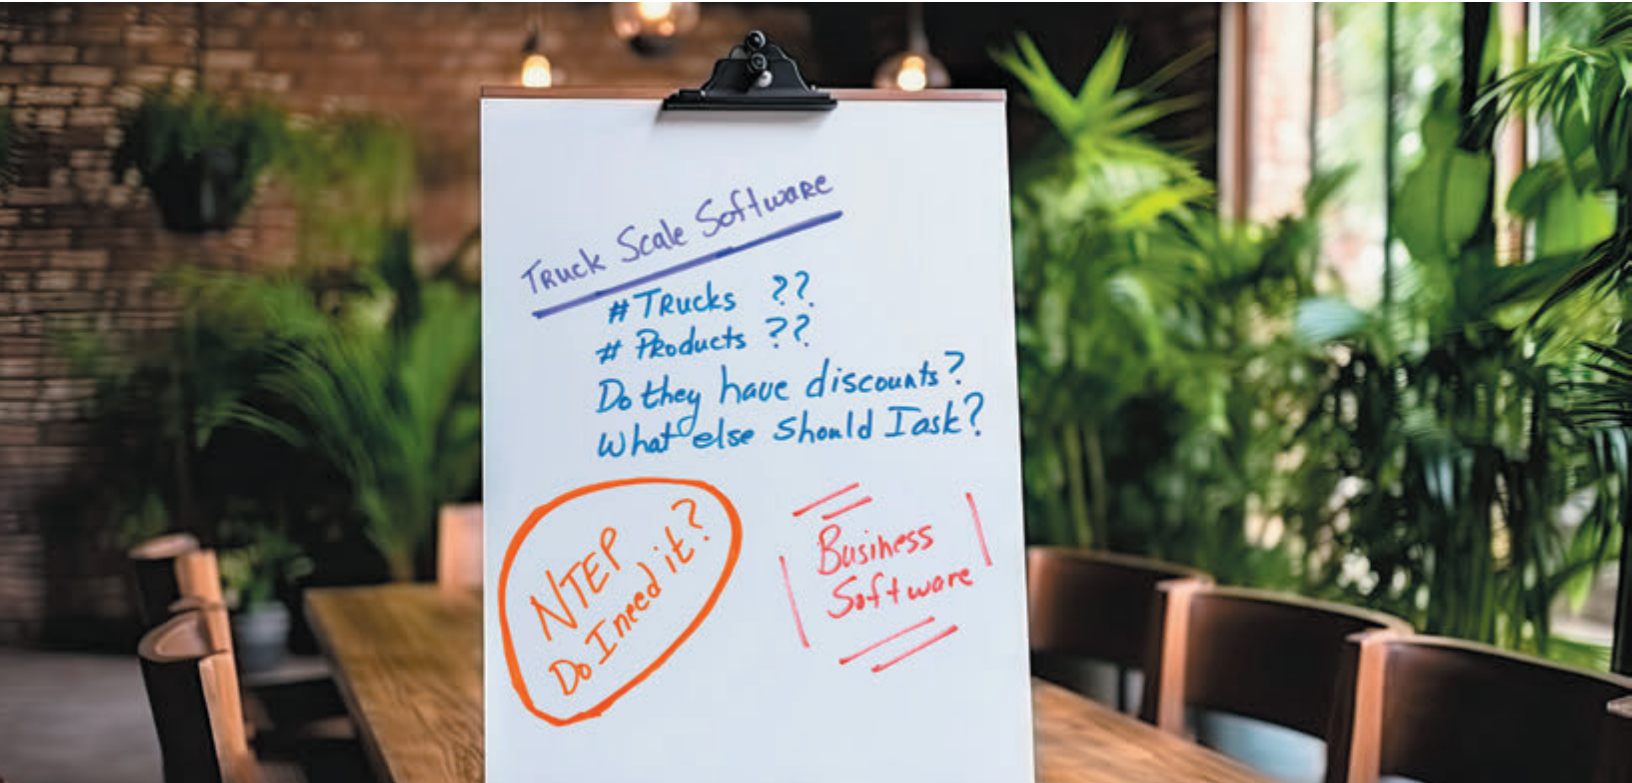 Truck Scale Software
# Trucks ??
# Products ??
Do they have discounts?
What else Should I ask?
NTEP
Do I need it?
Business
Software